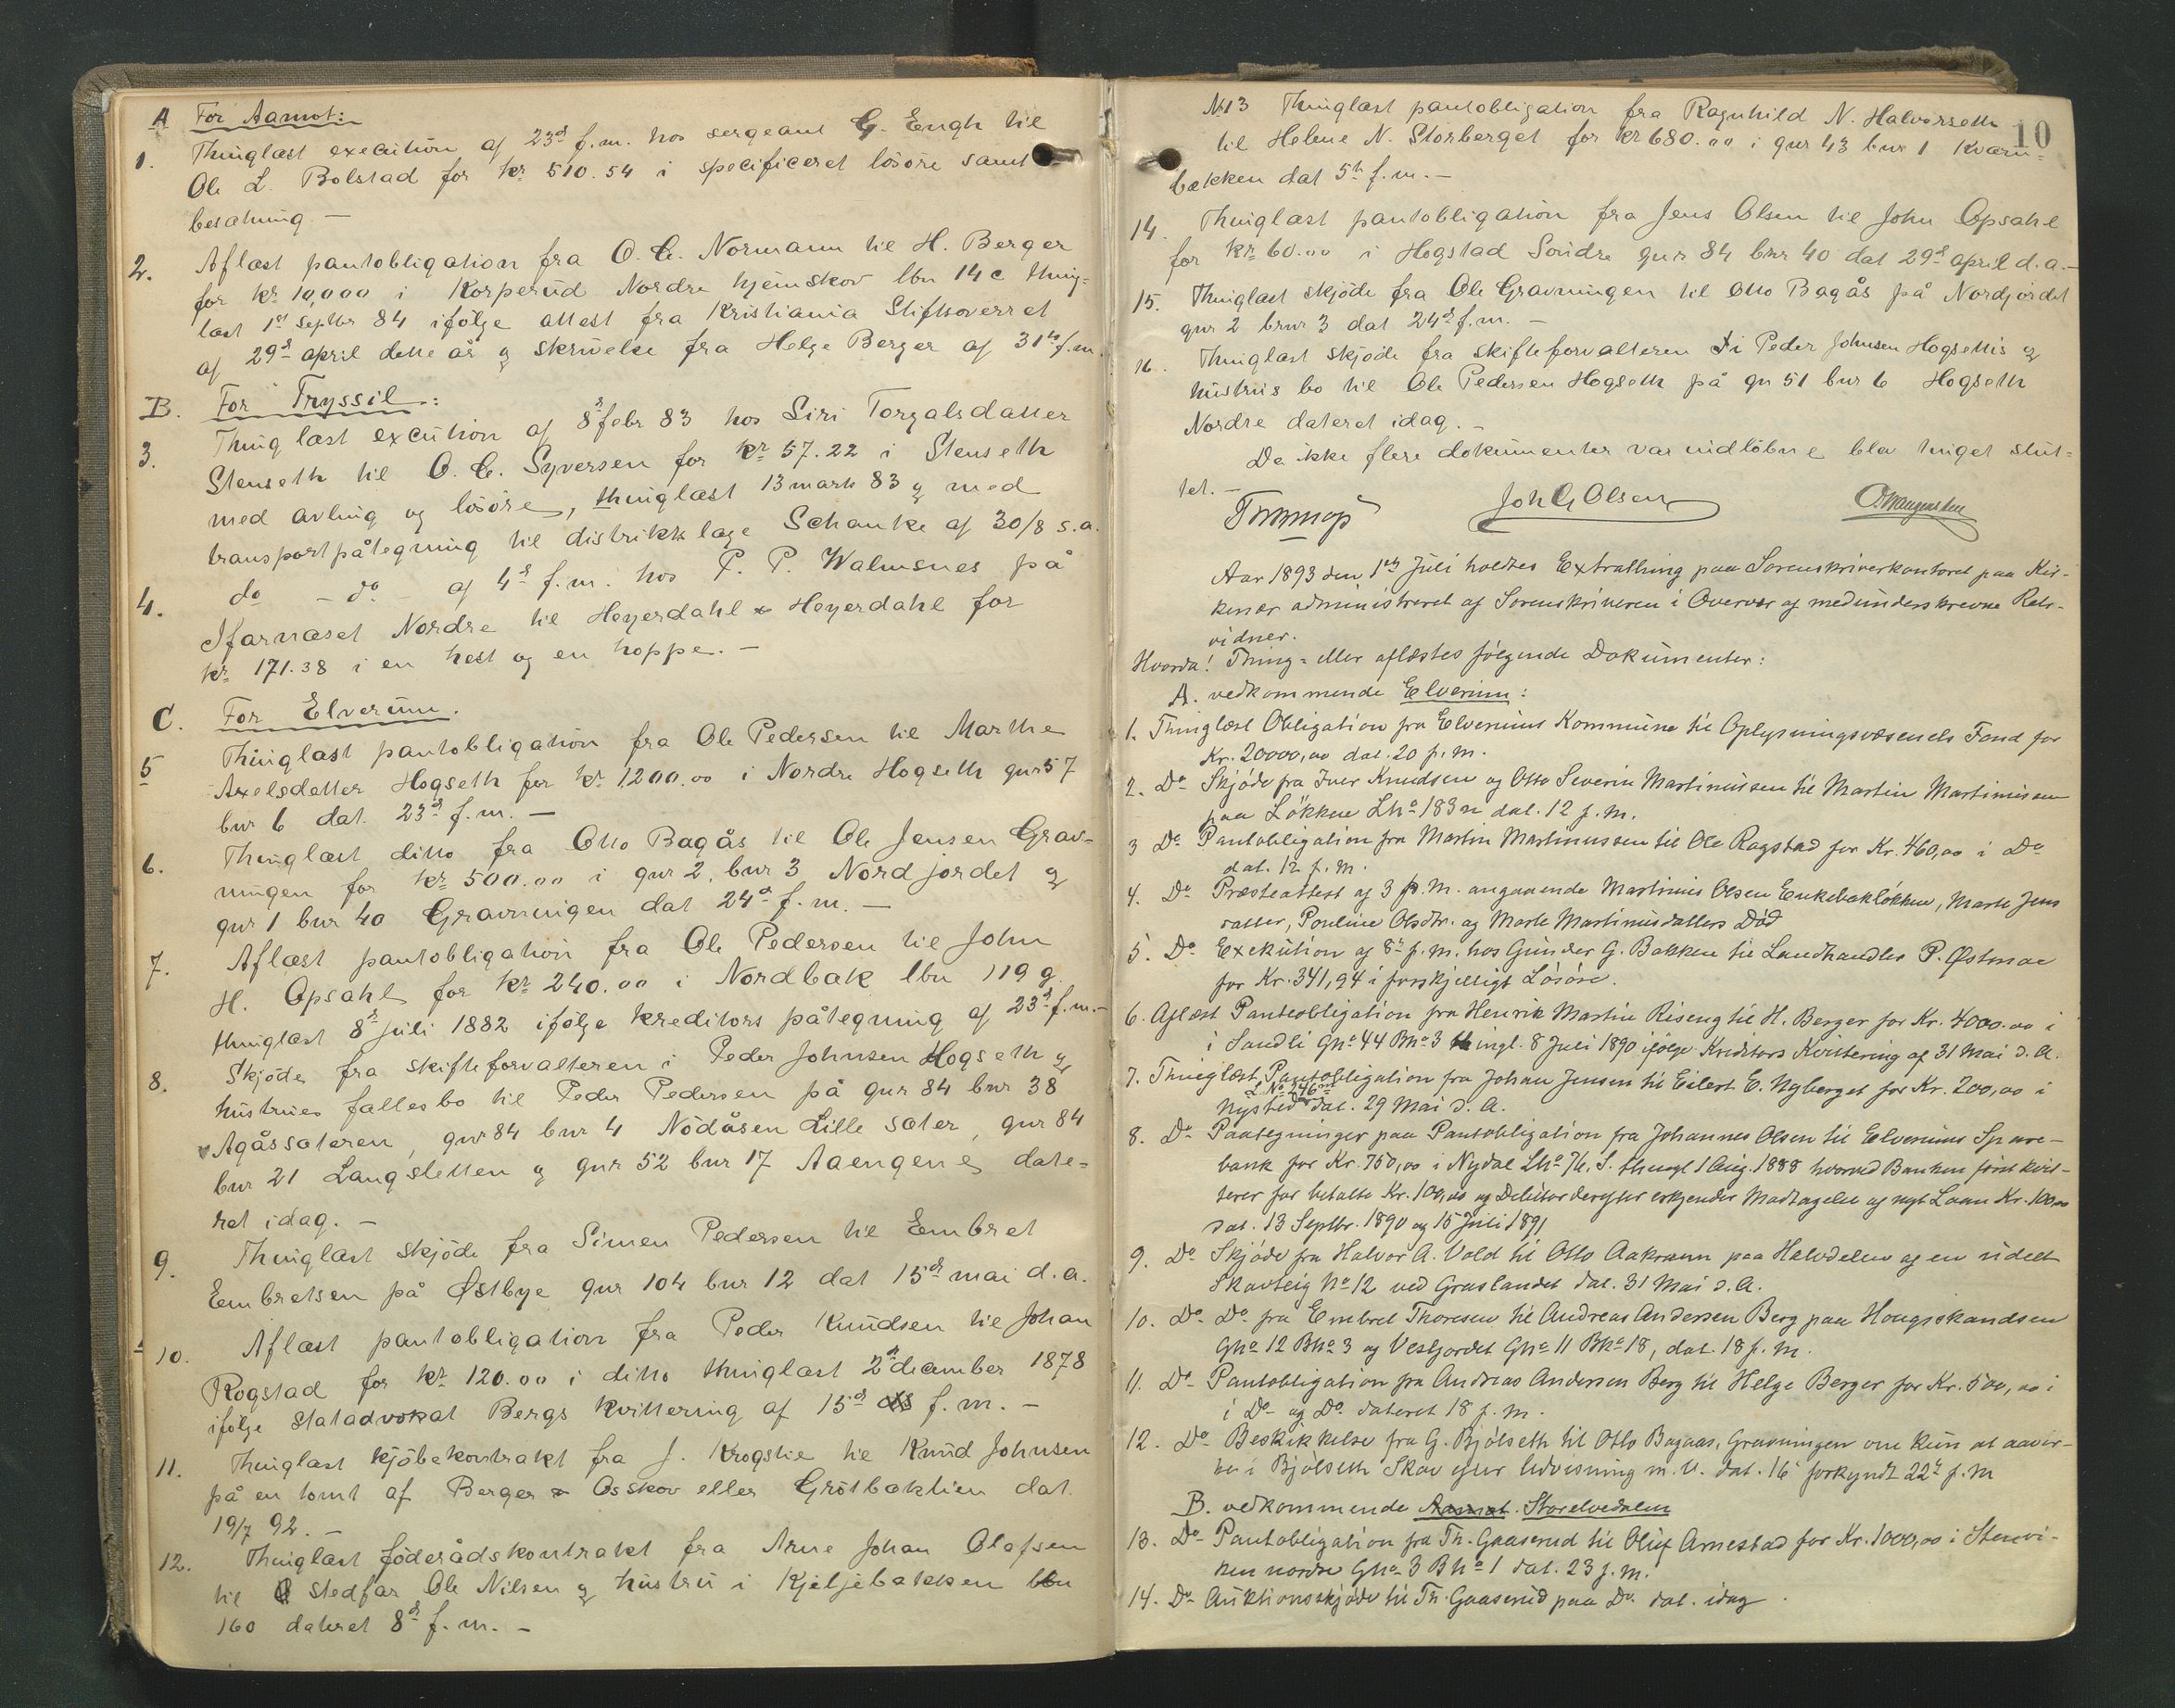 A For Aamot:
1. Thinglæst execution af 23d f.m. hos sergeant G. Engh til
Ole L. Bolstad for kr 510.54 i specificeret løsøre samt
besætning. —
2. Aflæst pantobligation fra O. C. Normann til H. Berger
for kr 10,000 i Korperud Nordre hjemskov lbn 14c thing-
læst 1st septbr 84 ifølge attest fra Kristiania Stiftsoverret
af 29d april dette år og skrivelse fra Helge Berger af 31te f.m.
B. For Tryssil:
3. Thinglæst excution af 8d febr 83 hos Siri Torgalsdatter
Stenseth til O. C. Syversen for kr 57.22 i Stenseth
med avling og løsøre, thinglæst 13 marts 83 og med
transportpåtegning til distriktslæge Schanke af 30/8 s.a.
4. do - do - af 4d f.m. hos P. P. Walmsnes på
Ifarnæset Nordre til Heyerdahl & Heyerdahl for
kr 171.38 i en hest og en hoppe. —
C. For Elverum.
5 Thinglæst pantobligation fra Ole Pedersen til Marthe
Axelsdatter Hogseth for kr 1200.00 i Nordre Hogseth gnr 57
bnr 6 dat. 23d f.m. —
6. Thinglæst ditto fra Otto Bagås til Ole Jensen Grav-
ningen for kr 500.00 i gnr 2, bnr 3 Nordjordet og
gnr 1 bnr 40 Gravningen dat 24d f.m. —
7. Aflæst pantobligation fra Ole Pedersen til John
H. Opsahl for kr 240.00 i Nordbak lbn 119 g
thinglæst 8d juli 1882 ifølge kreditors påtegning af 23d f.m.-
8. Skjøde fra skifteforvalteren i Peder Johnsen Hogseth og
hustrues fællesbo til Peder Pedersen på gnr 84 bnr 38
Agåssæteren, gnr 84 bnr 4 Nödåsen Lille sæter, gnr 84
bnr 21 Langsletten og gnr 52 bnr 17 Aaengene date-
ret idag. —
9. Thinglæst skjøde fra Simen Pedersen til Embret
Embretsen på Østbye gnr 104 bnr 12 dat 15d mai d.a.
10. Aflæst pantobligation fra Peder Knudsen til Johan
Rogstad for kr 120.00 i ditto thinglæst 2d december 1878
ifølge statadvokat Bergs kvittering af 15d f.m. —
11. Thinglæst kjøbekontrakt fra J. Krogstie til Knud Johnsen
på en tomt af Berger & Osskov eller Grötbæklien dat.
19/7 92. —
12. Thinglæst föderådskontrakt fra Arne Johan Olafsen
til stedfar Ole Nilsen og hustru i Kjeljebakken lbn
160 dateret 8d f.m. -
10
N13 Thinglæst pantobligation fra Ragnhild N. Halvorseth
til Helene N. Storberget for kr 680.00 i gnr 43 bnr 1 Kværn-
bækken dat 5te f.m. —
14. Thinglæst pantobligation fra Jens Olsen til John Opsahl
for kr 60.00 i Hogstad Søndre gnr 84 bnr 40 dat 29d april d.a.-
15. Thinglæst skjøde fra Ole Gravningen til Otto Bagås på Nordjordet
gnr 2 bnr 3 dat 24d f.m. —
16. Thinglæst skjøde fra skifteforvalteren i Peder Johnsen Hogseths og
hustrus bo til Ole Pedersen Hogseth på gn 51 bnr 6 Hogseth
Nordre dateret idag. -
Da ikke flere dokumenter var indløbne blev tinget slut-
tet. —
Joh G Olsen
Aar 1893 den 1ste Juli holdtes Extrathing paa Sorenskriverkontoret paa Kir-
kenær administreret af Sorenskriveren i Overvær af medunderskrevne Rets-
vidner.
Hvorda! Thing- eller aflæstes følgende Dokumenter:
A. vedkommende Elverum:
1. Thinglæst Obligation fra Elverums Kommune til Oplysningsvæsenets Fond for
Kr. 20000,00 dat. 20 f.m.
2. Do Skjøde fra Iver Knudsen og Otto Severin Martinussen til Martin Martinussen
paa Løkken Lno 183n dat. 12 f.m.
3 Do Pantobligation fra Martin Martinussen til Ole Rogstad for Kr. 460,00 i Do
dat. 12 f.m.
4. Do Præsteattest af 3 f.m. angaaende Martinus Olsen Enkebakløkken, Marte Jens
datter, Pouline Olsdtr. og Marte Martinusdatters Død
5. Do Exekution af 8d f.m. hos Gunder G. Bakken til Landhandler P. Østmoe
for Kr. 341,94 i forskjelligt Løsøre.
6. Aflæst Panteobligation fra Henrik Martin Riseng til H. Berger for Kr. 4000.00 i
i Sandli Gno 44 Bno 3 tingl. 8 Juli 1890 ifølge Kreditors Kvittering af 31 Mai d. A.
7. Thinglæst Pantobligation fra Johan Jensen til Eilert E. Nyberget for Kr. 200,00 i
Nysted dat. 29 Mai d. A.
8. Do Paategninger paa Pantobligation fra Johannes Olsen til Elverums Spare-
bank for Kr. 750,00 i Nydal Lno 76. S. thingl 1 Aug. 1888 hvorved Banken først kvit-
terer for betalte Kr. 100,00 og Debitor derefter erkjender Modtagelse af nyt Laan Kr. 100,00
dat. 13 Septbr. 1890 og 15 Juli 1891
9. Do Skjøde fra Halvor A. Vold til Otto Aakrann paa Halvdelen af en udelt
Skovteig No 12 ved Graslandet dat. 31 Mai d. A.
10. Do Do fra Embret Thoresen til Andreas Andersen Berg paa Hougsskandsen
Gno 12 Bno 3 og Vestjordet Gno 11 Bno 18, dat. 18 f.m.
11. Do Pantobligation fra Andreas Andersen Berg til Helge Berger for Kr. 500,00 i
i Do og Do dateret 18 f.m.
12. Do Beskikkelse fra G. Bjølseth til Otto Bagaas, Gravningen om kun at aavir-
ke i Bjølseth Skov efter Udvisning m.V. dat. 16 forkyndt 22d f.m
B. vedkommende Aamot. Storelvedalen
13. Do Pantobligation fra Th. Gaaserud til Oluf Arnestad for Kr. 1000,00 i Stenvi-
ken nordre Gno 3 Bno 1 dat. 23 f.m.
14. Do Auktionsskjøde til Th. Gaaserud paa Do. dat. idag.